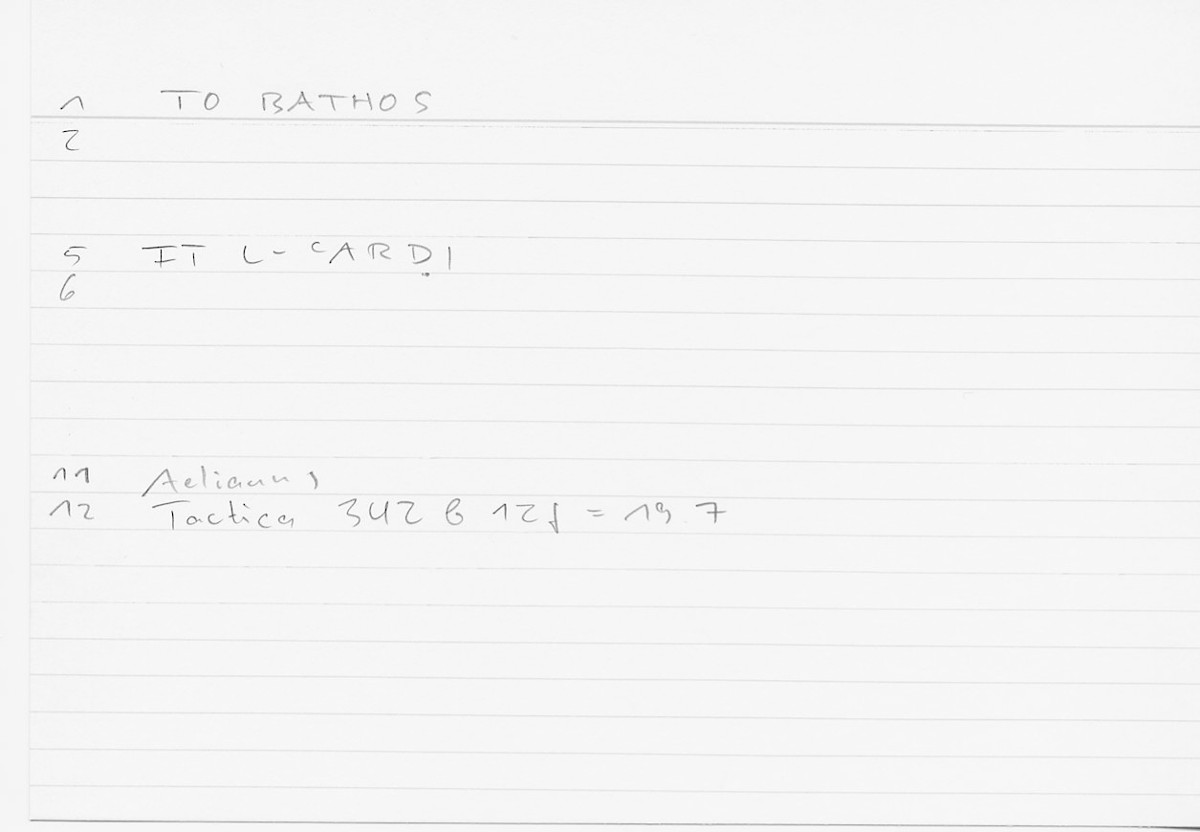 1 TO BATHOS
2
5 IT L-CARDI
6
11 Aelianus
12 Tactica 342 6 12f = 19 7